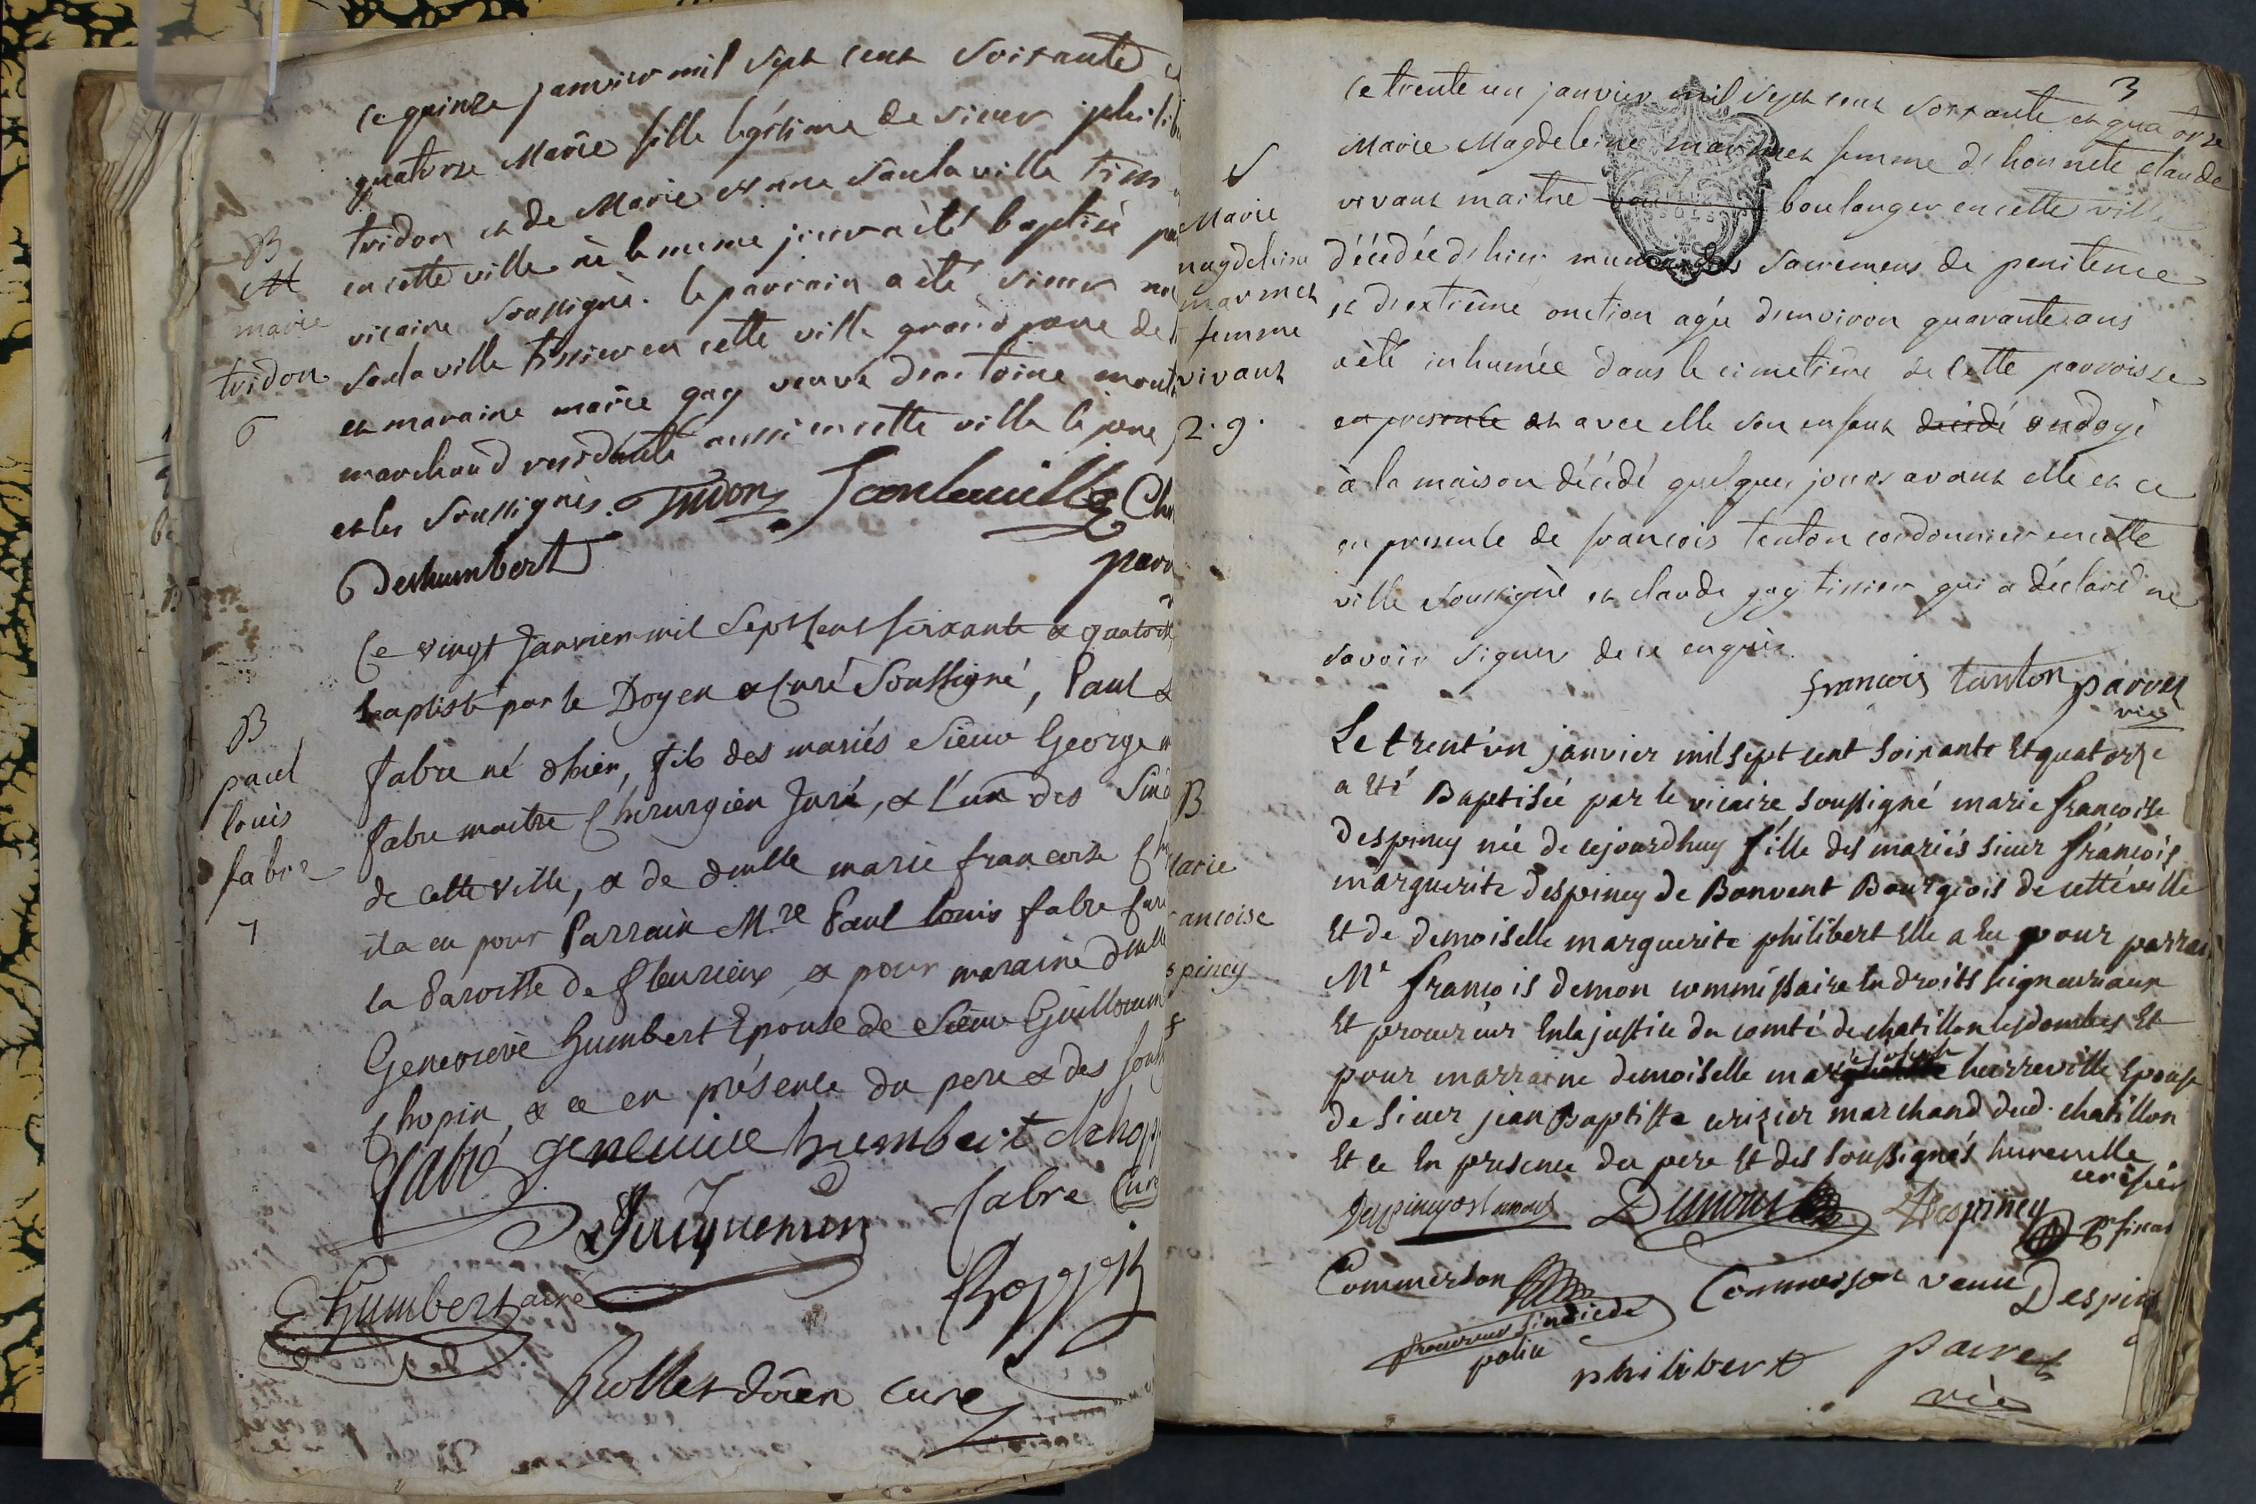 ce quinze janvier mil sept cent soixante
quatorze Marie fille legitime de sieur philib
tridon et de Marie anne santaville
en cette ville né le meme jour a été baptisé
vicaire soussigné. le parrain a été sieur
santaville tissier en cette ville grand pere de
et maraine marie gay veuve d'antoine
marchand residante aussi en cette ville le pere
et les soussignés. Tridon Santaville
Deshumbert
B
M
marie
tridon
6
Ce vingt Janvier mil Sept Cent soixante & quatorze
baptisé par le Doyen & Curé Soussigné, Paul
fabre né d'hier, fils des mariés Sieur George
fabre maitre Chirurgien Juré, & l'un des
de cette ville, & de dmlle marie francoise
il a eu pour Parrain M.re Paul louis fabre
la Paroisse de fleurieux & pour maraine dmlle
Genevieve humbert Epouse de Sieur Guillaume
Chopin, & ce en présence du pere & des
fabre genevive humbert
Jacquemin fabre Curé
humbert
Rollet doïen curé
B
paul
louis
fabre
7
3
ce trente un janvier mil sept cent soixante et quatorze
Marie Magdeleine marmet femme d'honnête claude
vivant maitre boulanger en cette ville
décédée d'hier munie des sacremens de penitence
et d'extrême onction agée d'environ quarante ans
a été inhumée dans le cimetière de cette parroisse
en presence et avec elle son enfant décédé ondoyé
à la maison décédé quelques jours avant elle et ce
en presence de francois tenton cordonnier en cette
ville soussigné et claude gay tissier qui a déclaré ne
savoir signer de ce enquis.
francois tanton parret
vic
S
Marie
magdeleine
marmet
femme
vivant
2. 9.
Le trent'un janvier mil sept cent soixante Et quatorze
a été Baptisée par le vicaire soussigné marie francoise
despiney née de cejourdhuy fille des mariés sieur francois
marguerite despiney de Bonvent Bourgeois de cette ville
Et de demoiselle marguerite philibert Elle a Eu pour parrai
Mr francois demon commissaire En droits seigneuriaux
Et procureur En la justice du comté de chatillon les dombes Et
pour marraine demoiselle hurreville Epouse
de sieur jean Baptiste cerizier marchand dud. chatillon
Et ce En presence du pere Et des soussignés hureville
cerisier
Despiney
Commerson Commerson veuve Despin
procureur sindicde
police
philibert parret
vic
B
arie
ancoise
spiney